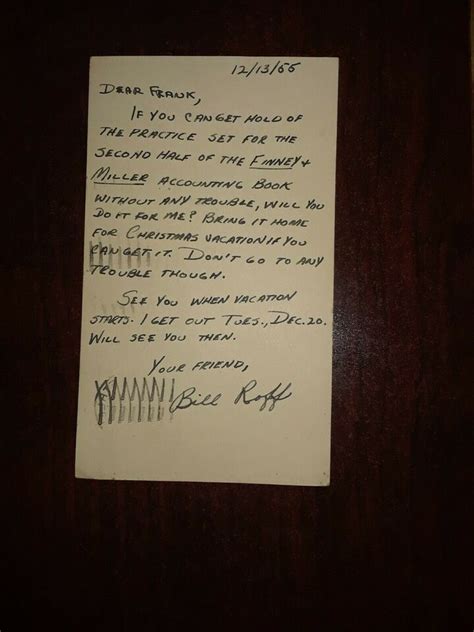 12/13/55
DEAR FRANK,
IF YOU CAN GET HOLD OF
THE PRACTICE SET FOR THE
SECOND HALF OF THE FINNEY &
MILLER ACCOUNTING BOOK
WITHOUT ANY TROUBLE, WILL YOU
DO IT FOR ME? BRING IT HOME
FOR CHRISTMAS VACATION IF YOU
CAN GET IT. DON'T GO TO ANY
TROUBLE THOUGH.
SEE YOU WHEN VACATION
STARTS. I GET OUT TUES., DEC. 20.
WILL SEE YOU THEN.
YOUR FRIEND,
Bill Roff